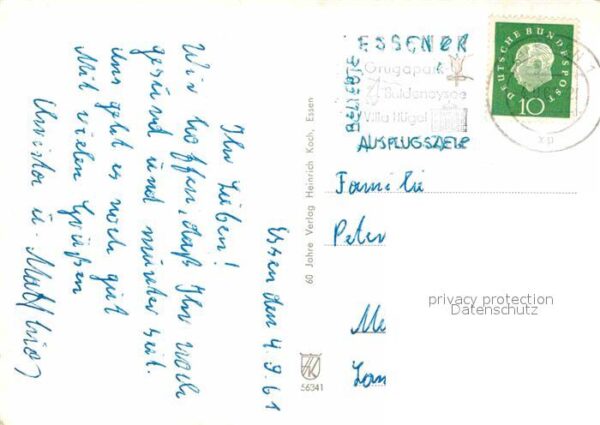 Essen den 4.9.61
Ihr Lieben!
Wir hoffen, daß Ihr noch
gesund und munter seit.
Uns geht es noch gut
Mit vielen Grüßen
Christa u. Matthias
60 Jahre Verlag Heinrich Koch, Essen
56341
BELIEBTE
ESSENER
Grugapark
Baldeneysee
Villa Hügel
AUSFLUGSZIELE
DEUTSCHE BUNDESPOST
10
Familie
Peter
Me
Lan
privacy protection
Datenschutz